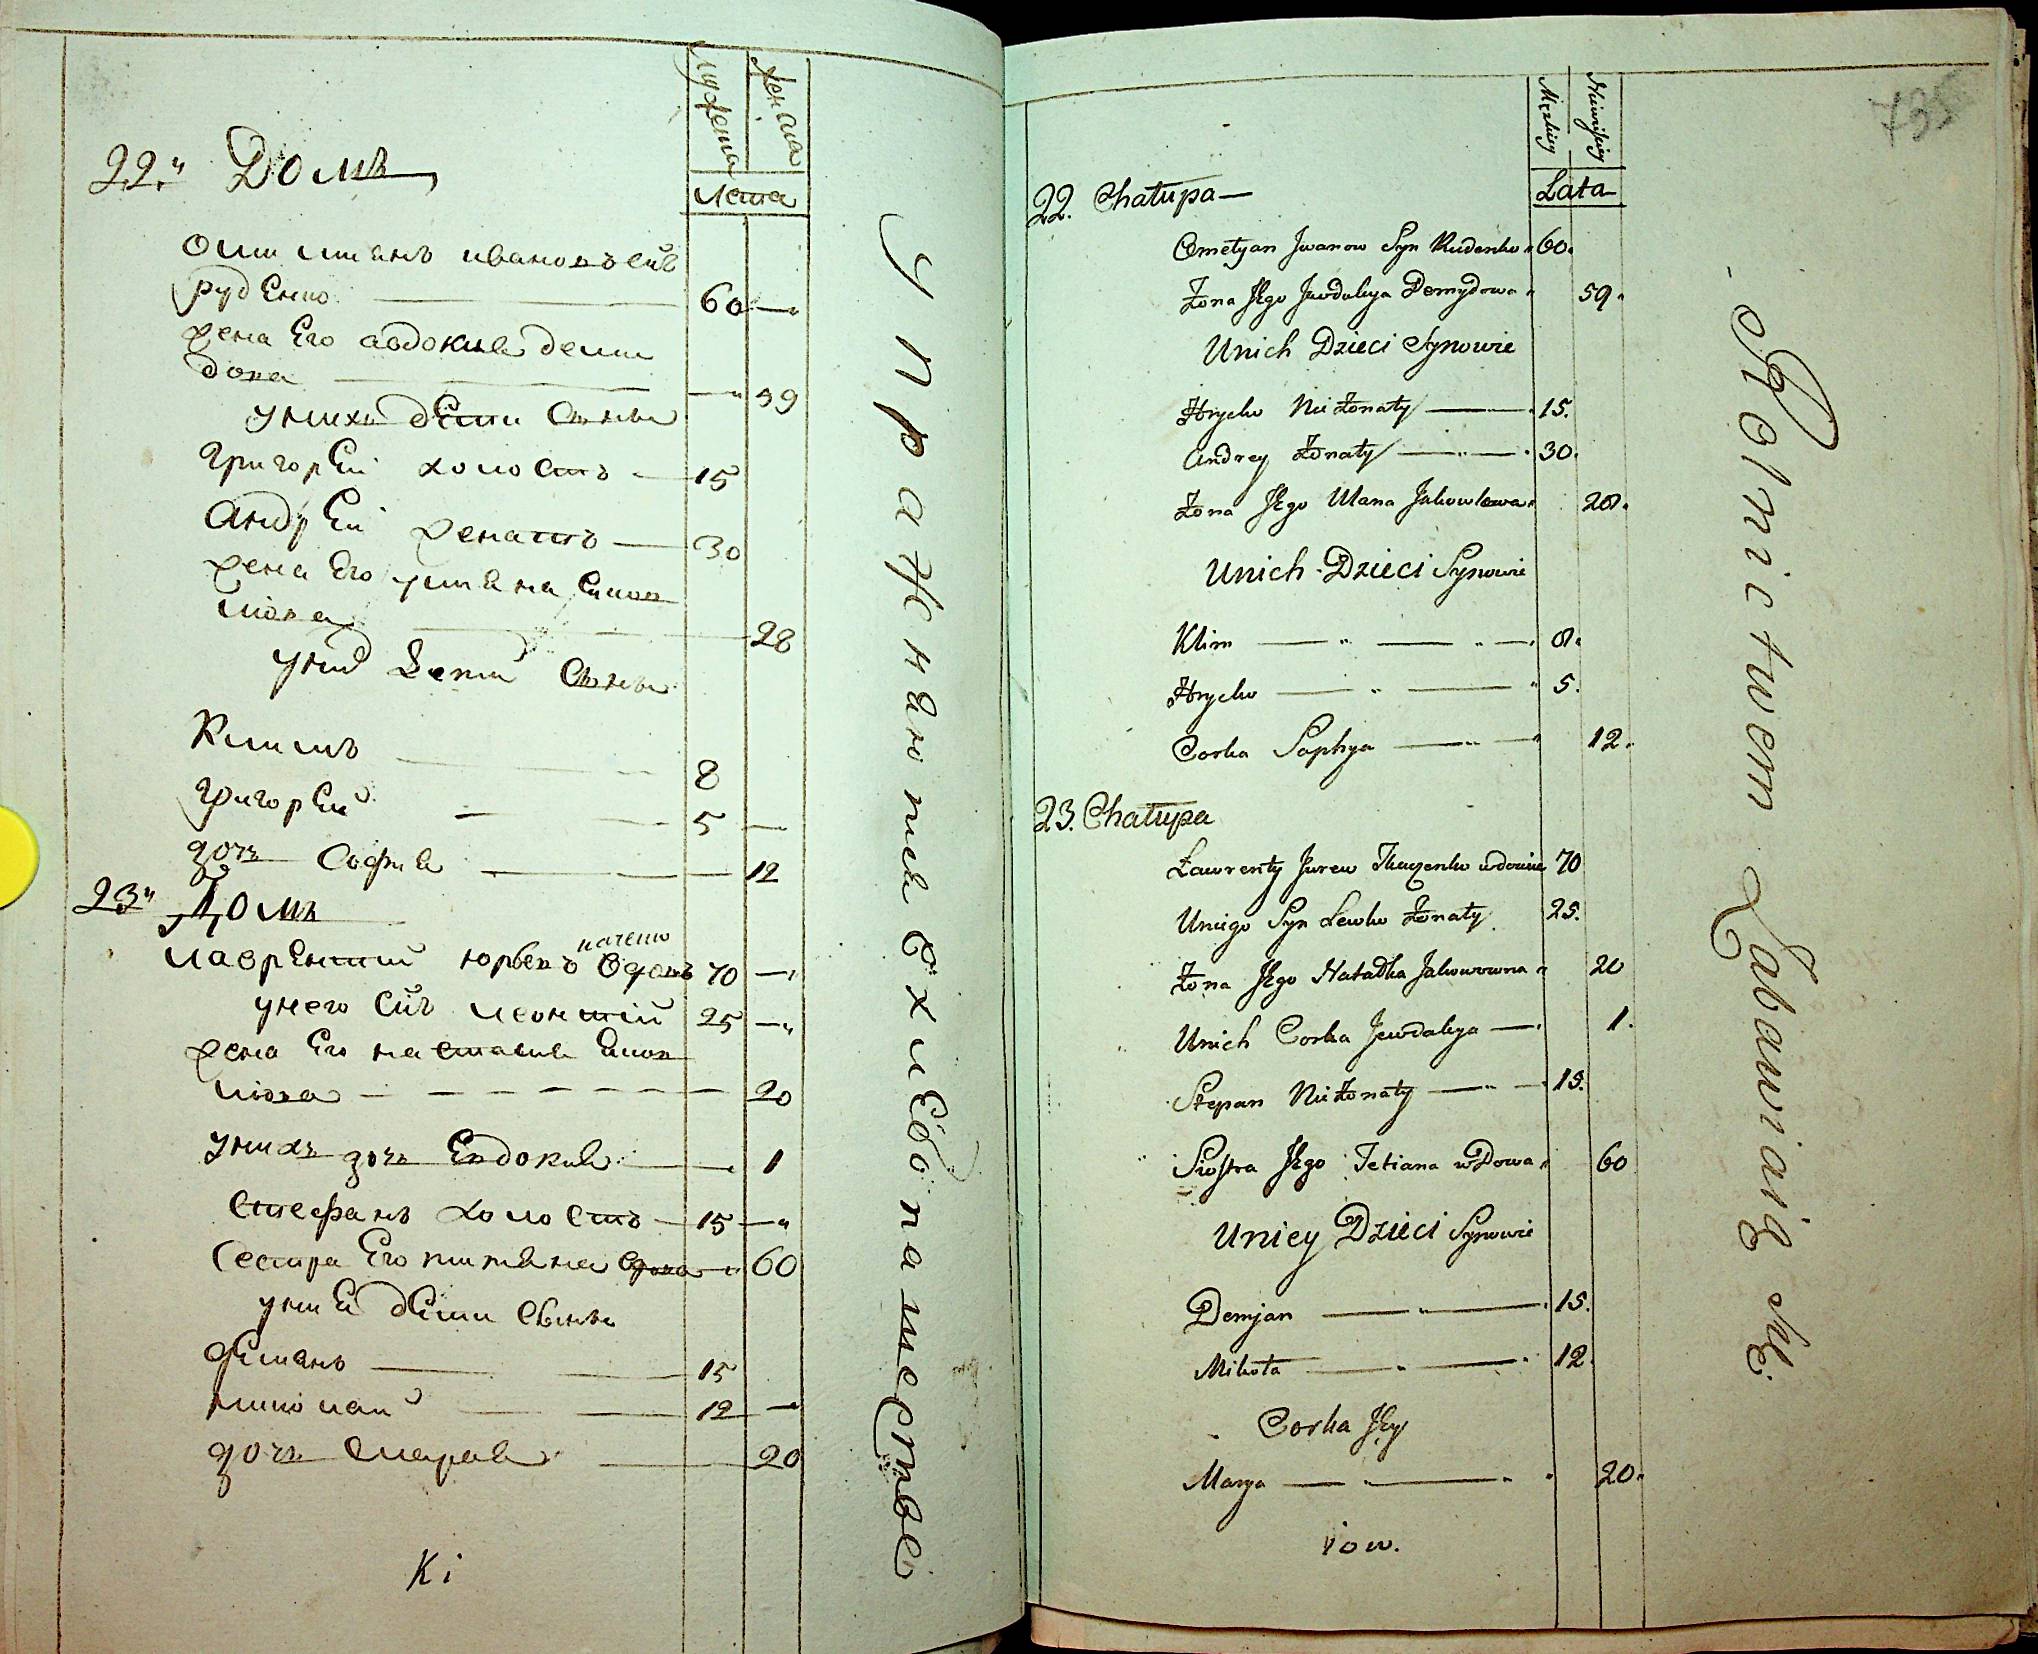 мужеска
женска
лета
22. Домъ
Омилиянъ ивановъ сйъ
руденко 60
жена Его авдокия деми
дова 59
уних дети Сыны
григорей холостъ 15
Андрей женатъ 30
жена Его улияна Яков
лева 28
уних дети Сыны
Климъ 8
григорей 5
дочь София 12
23. Домъ
лаврентий юрьевъ ткаченко вдовъ 70
унего Сйъ леонтий 25
жена Его наталия Яков
лева 20
унихъ дочь Евдокия 1
Стефанъ холостъ 15
Сестра Его титяна вдова 60
уней дети Сыны
демянъ 15
николай 12
дочь мария 20
Кi
Упражняютца вхлебопашестве
735
Męzkiey
Niewieściey
Lata
22. Chałupa
Omelyan Jwanow Syn Rudenko 60.
Żona Jego Jewdokya Demydowa 59.
Unich Dzieci Synowie
Hrycko Nieżonaty 15.
Andrey Żonaty 30.
Żona Jego Ulana Jakowlewa 28.
Unich Dzieci Synowie
Klim 8.
Hrycko 5.
Corka Sophya 12.
23. Chałupa
Ławrenty Jurew Tkaczenko wdowiec 70
Uniego Syn Lewko Żonaty 25.
Żona Jego Natalka Jakowowna 20
Unich Corka Jewdokya 1.
Stepan Nieżonaty 15.
Siostra Jego Tetiana wDowa 60
Uniey Dzieci Synowie
Demjan 15.
Mikoła 12
Corka Jey
Marya 20.
iow.
Rolnictwem Zabawiaią się.